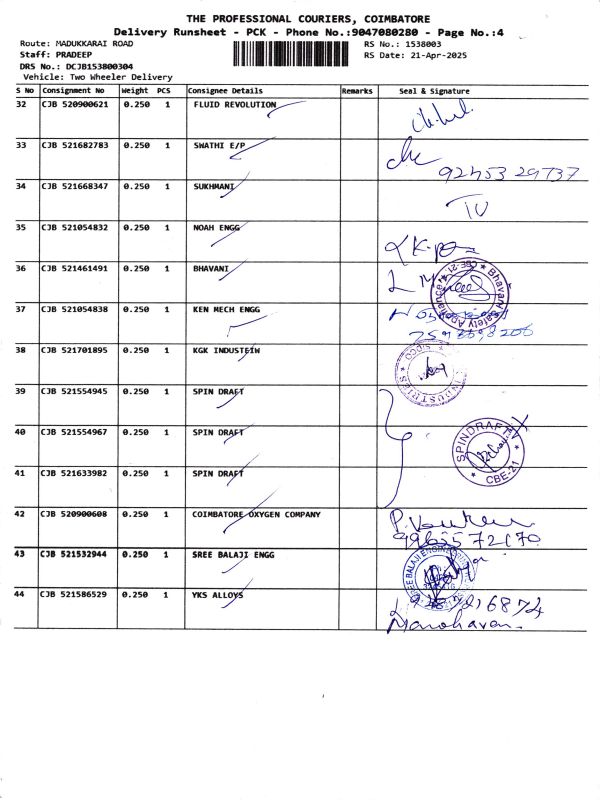 THE PROFESSIONAL COURIERS, COIMBATORE
Delivery Runsheet - PCK - Phone No.:9047080280 - Page No.:4
Route: MADUKKARAI ROAD RS No.: 1538003
Staff: PRADEEP RS Date: 21-Apr-2025
DRS No.: DCJB153800304
Vehicle: Two Wheeler Delivery
S No Consignment No Weight PCS Consignee Details Remarks Seal & Signature
32 CJB 520900621 0.250 1 FLUID REVOLUTION
33 CJB 521682783 0.250 1 SWATHI E/P
92453 29737
34 CJB 521668347 0.250 1 SUKHMANI
35 CJB 521054832 0.250 1 NOAH ENGG
36 CJB 521461491 0.250 1 BHAVANI
Bhavani Safety Appliance CBE-21
37 CJB 521054838 0.250 1 KEN MECH ENGG
38 CJB 521701895 0.250 1 KGK INDUSTEIW
INDUSTRIES SIDCO
39 CJB 521554945 0.250 1 SPIN DRAFT
40 CJB 521554967 0.250 1 SPIN DRAFT
SPINDRAFT CBE-21
41 CJB 521633982 0.250 1 SPIN DRAFT
42 CJB 520900608 0.250 1 COIMBATORE OXYGEN COMPANY
43 CJB 521532944 0.250 1 SREE BALAJI ENGG
SREE BALAJI ENGINEERING
44 CJB 521586529 0.250 1 YKS ALLOYS